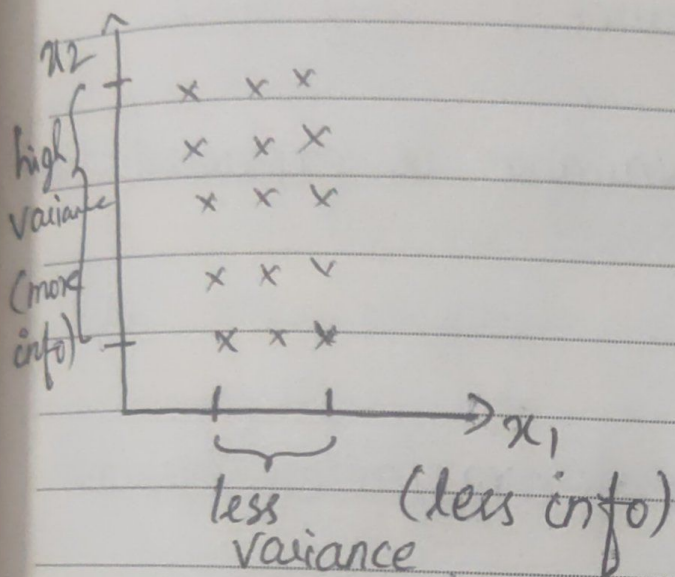 x2
high
variance
(more
info)
x1
less
variance
(less info)